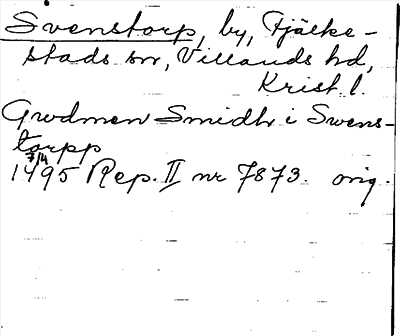 Svenstorp, by, Fjälke-
stads sn, Villands hd,
Krist. l.
Gudmen Smidh i Swens-
torpp
7/4
1495 Rep. II nr 7873. orig.